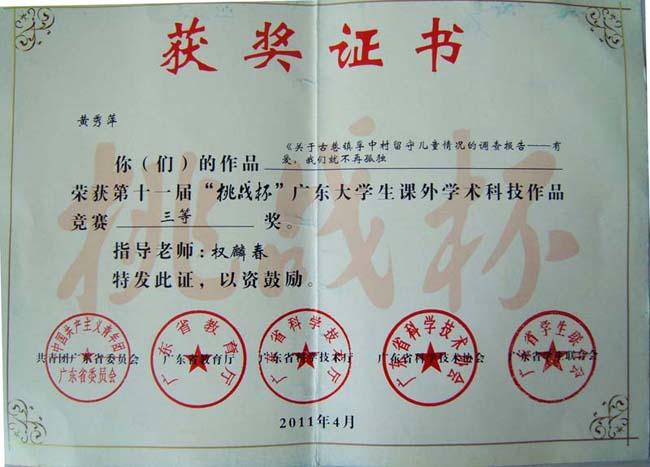 获奖证书
黄秀萍
《关于古巷镇孚中村留守儿童情况的调查报告——有
你(们)的作品 爱,我们就不再孤独
荣获第十一届“挑战杯”广东大学生课外学术科技作品
竞赛 三等 奖。
指导老师:权麟春
特发此证,以资鼓励。
挑战杯
共青团广东省委员会 广东省教育厅 广东省科学技术厅 广东省科学技术协会 广东省学生联合会
中国共产主义青年团 广东省委员会
广东省教育厅
广东省科学技术厅
广东省科学技术协会
广东省学生联合会
2011年4月